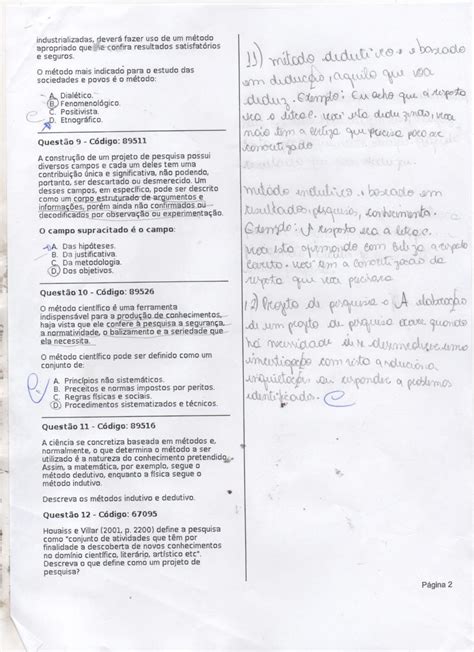 industrializadas, deverá fazer uso de um método
apropriado que lhe confira resultados satisfatórios
e seguros.
O método mais indicado para o estudo das
sociedades e povos é o método:
A. Dialético.
B. Fenomenológico.
C. Positivista.
D. Etnográfico.
Questão 9 - Código: 89511
A construção de um projeto de pesquisa possui
diversos campos e cada um deles tem uma
contribuição única e significativa, não podendo,
portanto, ser descartado ou desmerecido. Um
desses campos, em específico, pode ser descrito
como um corpo estruturado de argumentos e
informações, porém ainda não confirmados ou
decodificados por observação ou experimentação.
O campo supracitado é o campo:
A. Das hipóteses.
B. Da justificativa.
C. Da metodologia.
D. Dos objetivos.
Questão 10 - Código: 89526
O método científico é uma ferramenta
indispensável para a produção de conhecimentos,
haja vista que ele confere à pesquisa a segurança,
a normatividade, o balizamento e a seriedade que
ela necessita.
O método científico pode ser definido como um
conjunto de:
A. Princípios não sistemáticos.
B. Preceitos e normas impostos por peritos.
C. Regras físicas e sociais.
D. Procedimentos sistematizados e técnicos.
Questão 11 - Código: 89516
A ciência se concretiza baseada em métodos e,
normalmente, o que determina o método a ser
utilizado é a natureza do conhecimento pretendido.
Assim, a matemática, por exemplo, segue o
método dedutivo, enquanto a física segue o
método indutivo.
Descreva os métodos indutivo e dedutivo.
Questão 12 - Código: 67095
Houaiss e Villar (2001, p. 2200) define a pesquisa
como "conjunto de atividades que têm por
finalidade a descoberta de novos conhecimentos
no domínio científico, literário, artístico etc".
Descreva o que define como um projeto de
pesquisa?
11) método dedutivo e baseado
em dedução, aquilo que voa
deduz. Exemplo: Eu acho que a resposta
não tem a certeza que precisa para ser
concretizado
método indutivo e baseado em
resultados, pesquisa, conhecimento.
Exemplo: A resposta
com certeza a resposta
resposta que
12) Projeto de pesquisa e A elaboração
de um projeto de pesquisa ocorre quando
há necessidade de se desenvolver uma
investigação com vista a
ou responder a problemas
identificados. C
Página 2